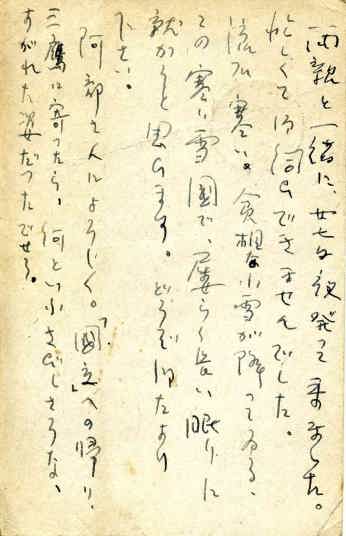 両親と一緒に、廿七日夜発って来ました。
忙しくてお伺ひできませんでした。
流石寒い。貧相な小雪が降ってゐる、
この寒い雪國で、暫らく長い眠りに
就かうと思ひます。どうぞおたより
下さい。
阿部さんによろしく。「國立」への帰り、
三鷹に寄ったら、何といふさびしさうな、
すがれた姿だったでせう。